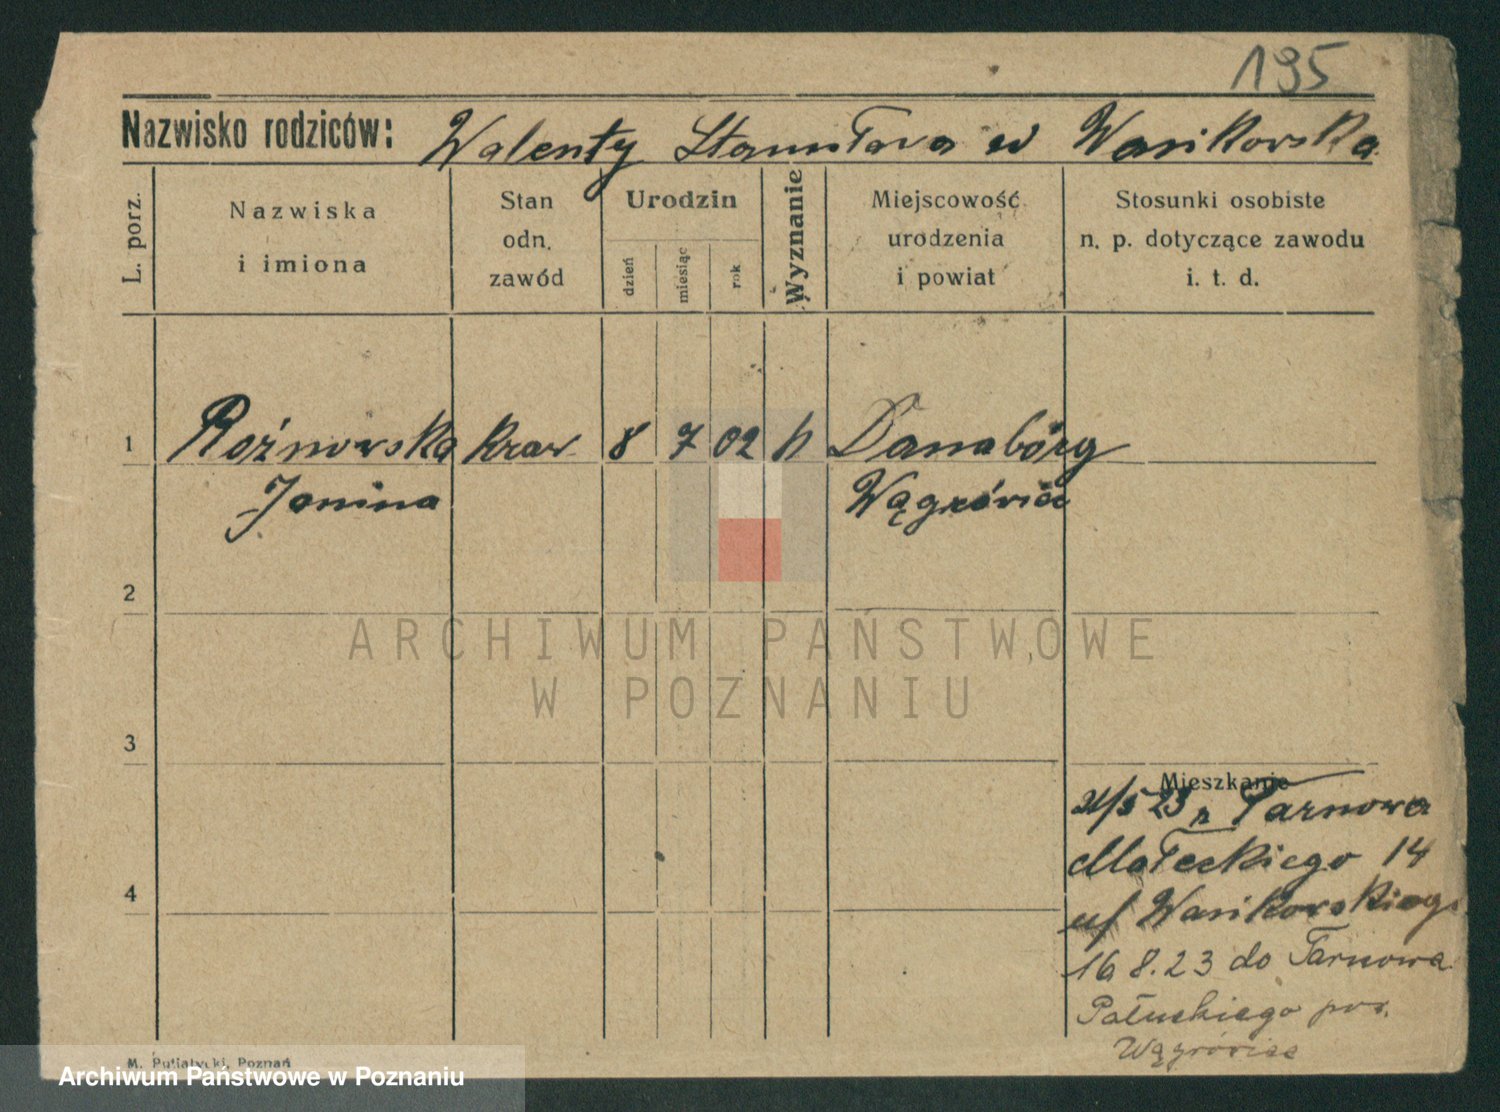 195
Nazwisko rodziców: Walenty Stanisława w Wasikowska
L. porz.
Nazwiska i imiona
Stan odn. zawód
Urodzin
dzień miesiąc rok
Wyznanie
Miejscowość urodzenia i powiat
Stosunki osobiste n. p. dotyczące zawodu i. t. d.
1 Rożnowska kraw 8 7 02 k Danabórg
Janina Wągrówiec
2
ARCHIWUM PAŃSTWOWE
W POZNANIU
3
Mieszkanie
21/5 23 z Tarnowa
Małeckiego 14
u/ Wasikowskiego
4
16 8.23 do Tarnowa
Pałuckiego pow.
Wągrówiec
M. Putiatycki, Poznań
Archiwum Państwowe w Poznaniu